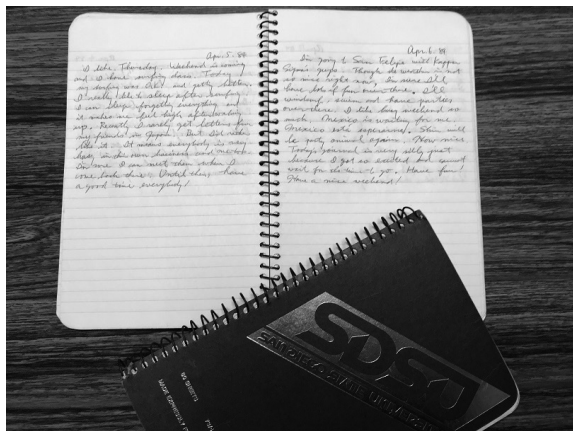 Apr. 5. '89
I like Thursday. Weekend is coming
and I have surfing class. Today
my surfing was O.K. and getting better.
I really like to sleep after surfing.
I can sleep forgetting everything and
it makes me feel high after waking
up. Recently I rarely get letters from
my friends in Japan. But I don't really
like it. It means everybody is very
busy in his own business and
I can not them when I
come back there. Until then have
a good time everybody!
Apr. 6. '89
I'm going to San Felipe with Kappa
Sigma guys. Though the weather is not
so nice right now, I'm sure I'll
have lots of fun over there. I'll
windsurf, swim and have parties
over there. I like long weekend so
much. Mexico is waiting for me.
Mexico está esperando. This will
be party animal again. How nice.
Today's journal is very silly just
because I got so excited and cannot
wait for the time to go. Have fun!
Have a nice weekend!
SDSU
SAN DIEGO STATE UNIVERSITY
80 SHEETS
MADE EXPRESSLY